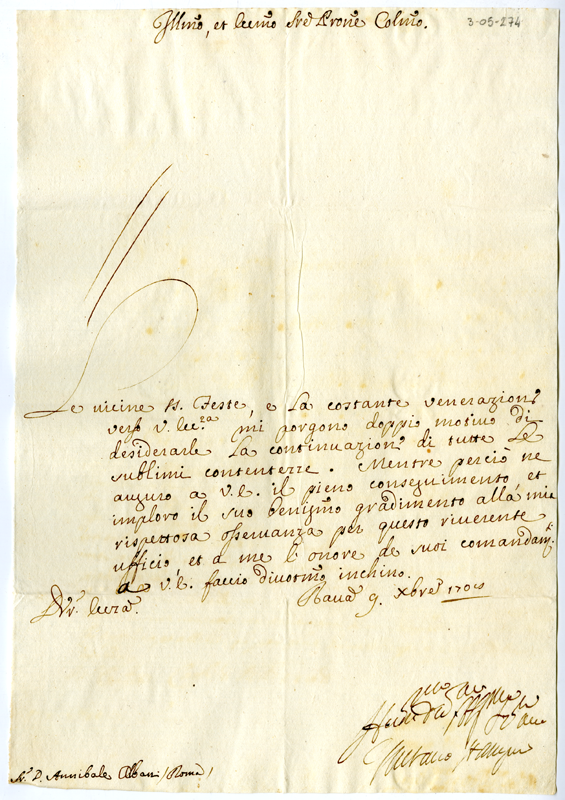 Illmo, et Eccmo Sre Prone Colmo.
3-05-274
Le vicine S. Feste, e la costante venerazione
verso V. Ecc.za mi porgono doppio motivo di
desiderarle la continuazione di tutte le
sublimi contentezze. Mentre perciò ne
auguro a V.E. il pieno conseguimento, et
imploro il suo benigmo gradimento alla mia
rispettosa osservanza per questo riverente
ufficio, et a me l'onore de suoi comandam.ti
a V.E. faccio divotmo inchino.
Di V. Ecceza. Ravna 9. Xbre
Gaetano
Sr. D. Annibale Albani / Roma /